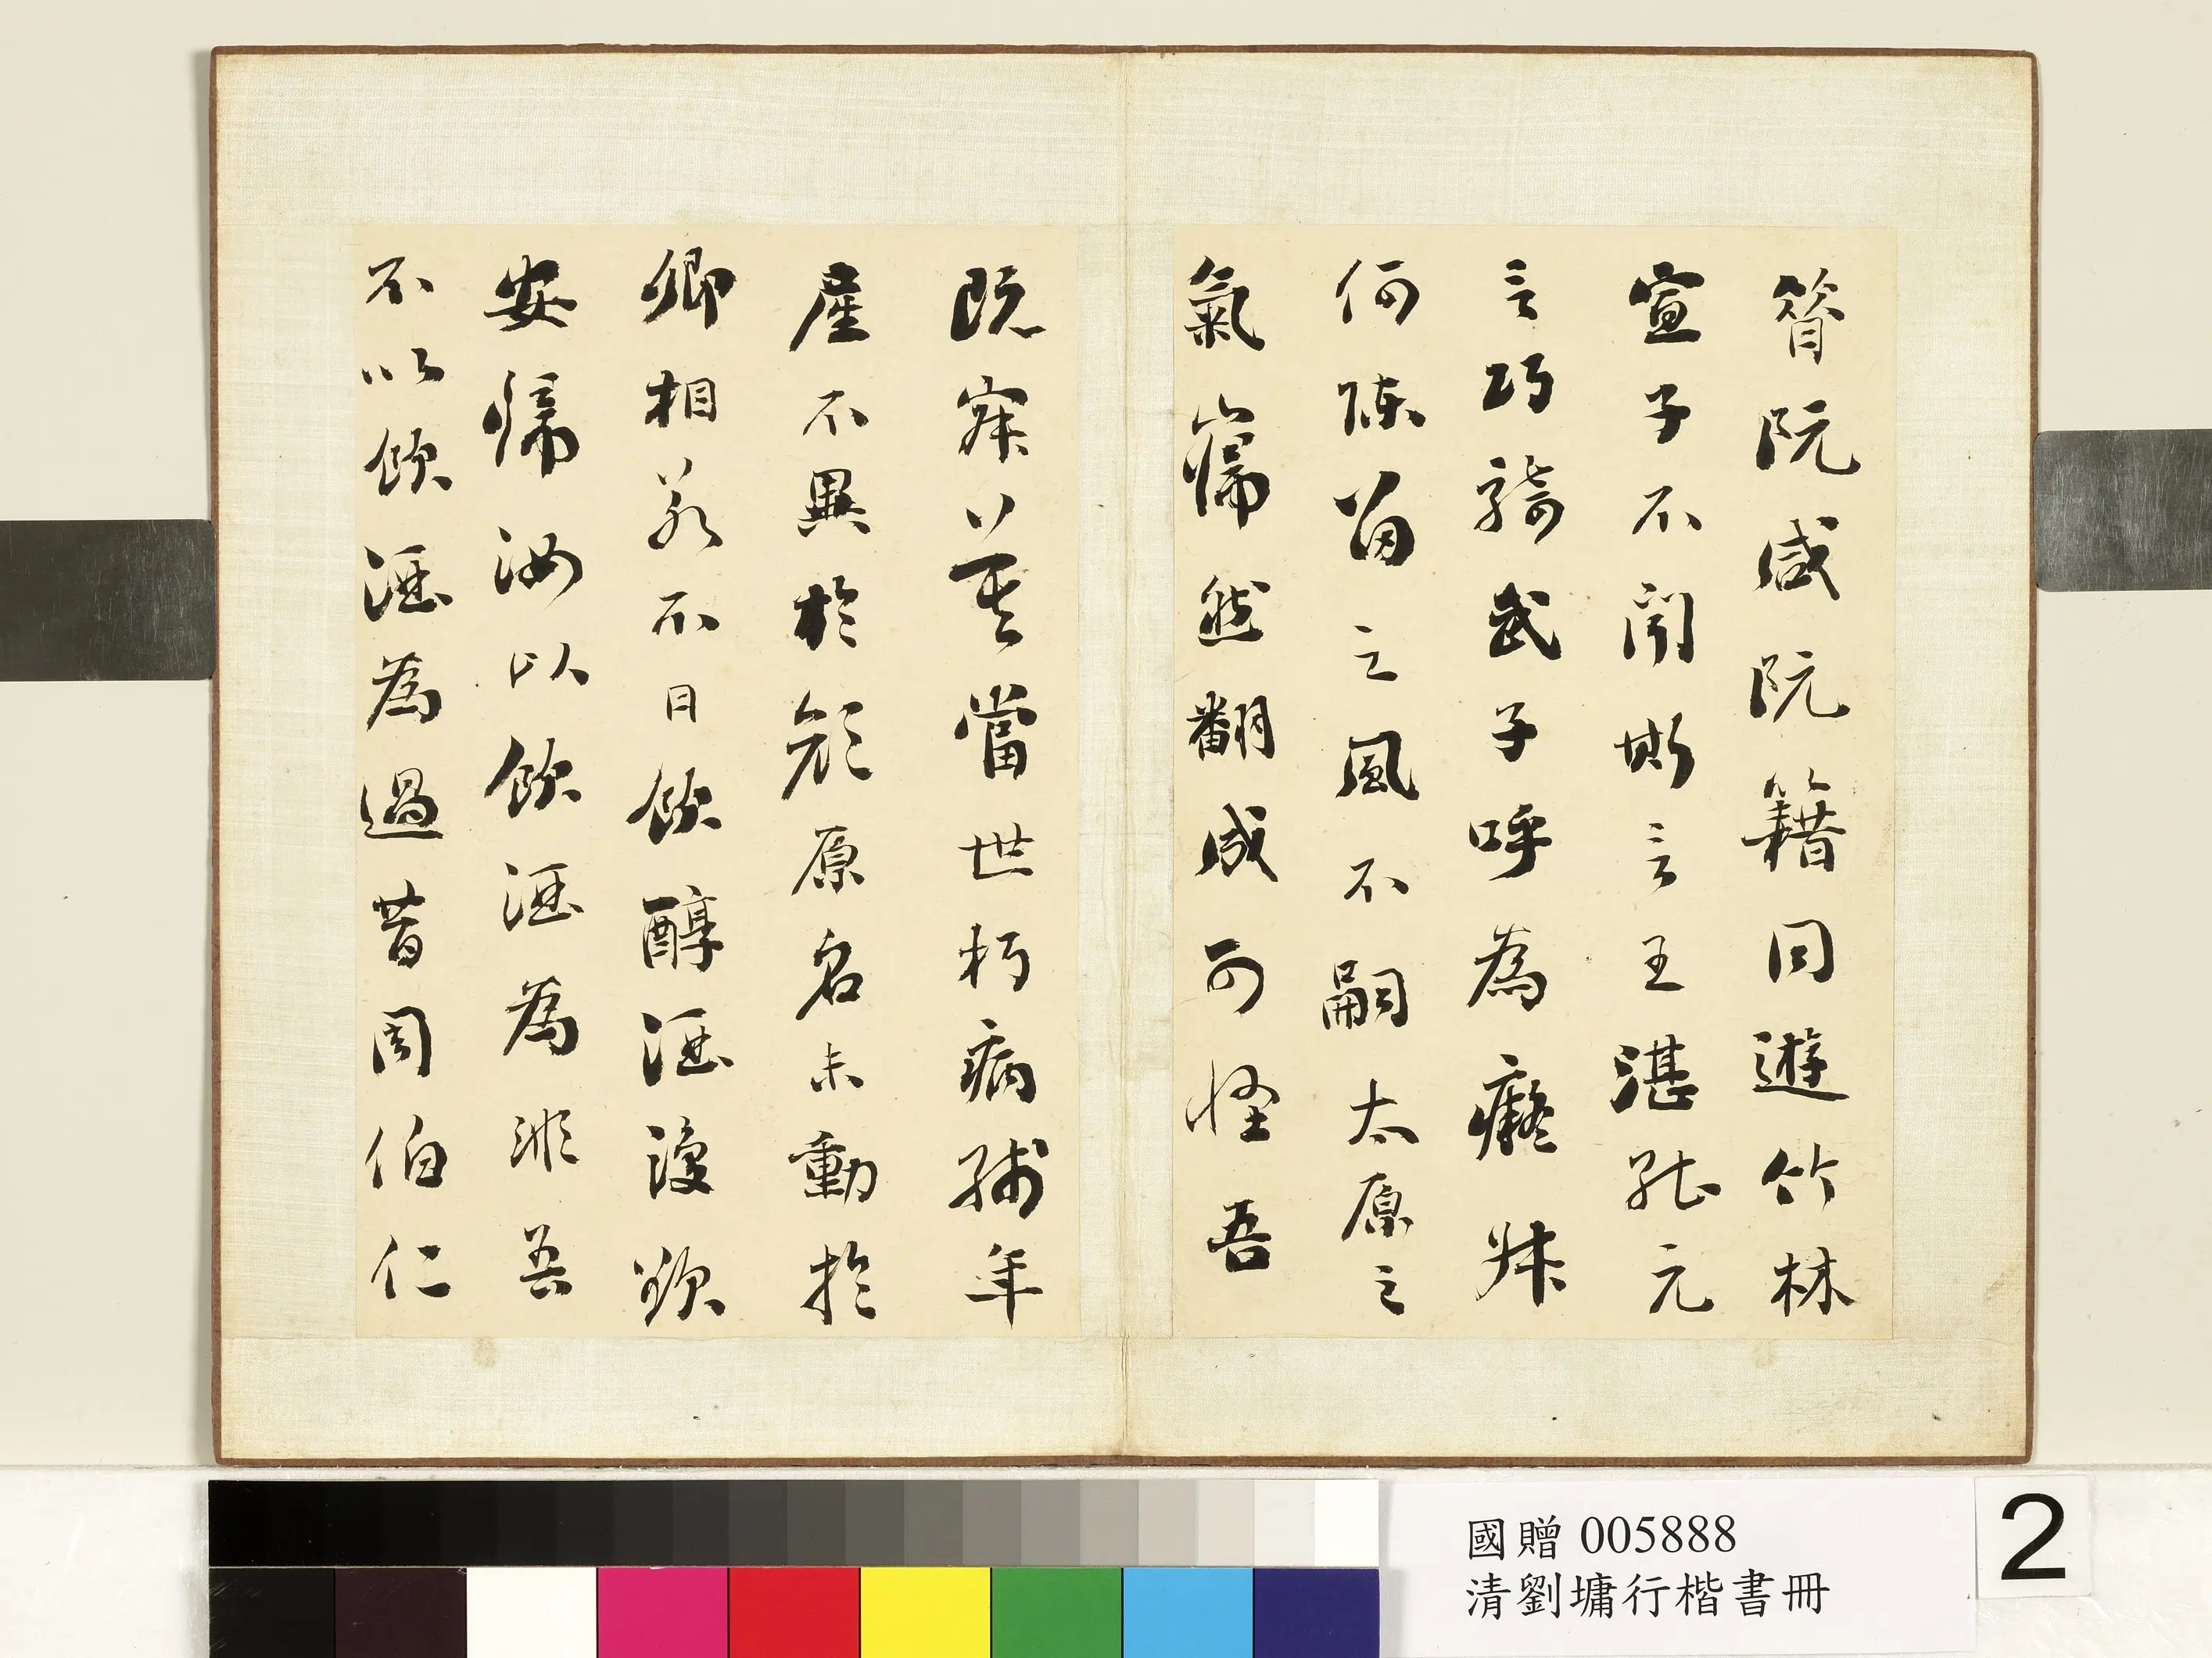 昔阮咸阮籍同遊竹林
宣子不聞斯言王湛能元
言巧騎武子呼為癡叔
何陳留之風不嗣太原之
氣巋然翻成可怪吾
既寂莫當世朽病殘年
產不異於顏原名未動於
卿相若不日飲醇酒復欲
安歸汝以飲酒為非吾
不以飲酒為過昔周伯仁
國贈 005888
清劉墉行楷書冊
2